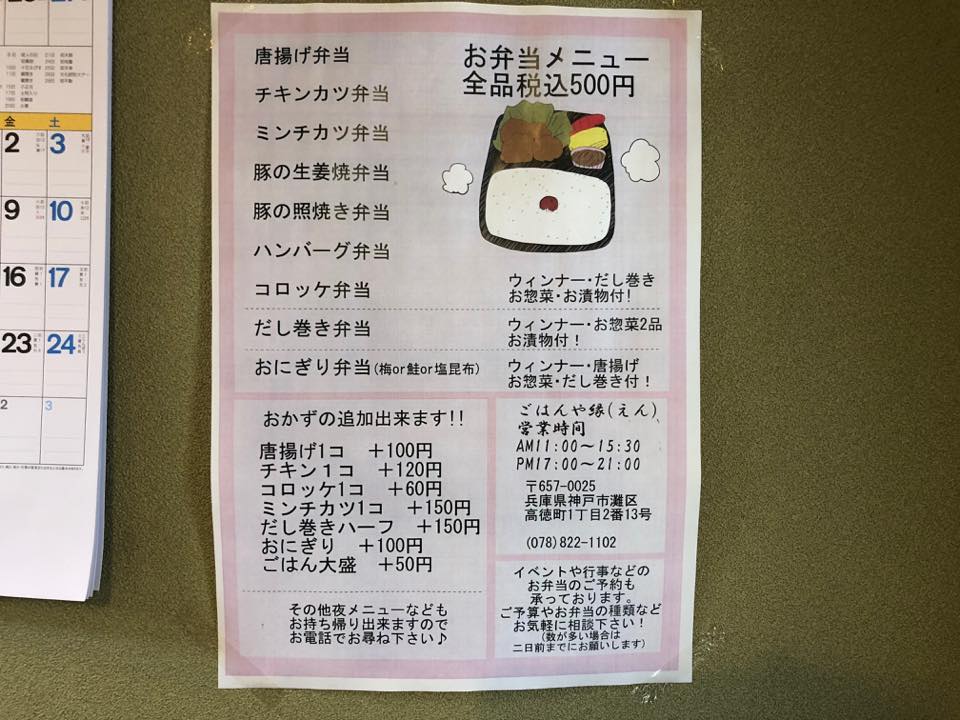 金 土
2 3
9 10
16 17
23 24
2 3
お弁当メニュー
全品税込500円
唐揚げ弁当
チキンカツ弁当
ミンチカツ弁当
豚の生姜焼弁当
豚の照焼き弁当
ハンバーグ弁当
コロッケ弁当
ウィンナー・だし巻き
お惣菜・お漬物付!
だし巻き弁当
ウィンナー・お惣菜2品
お漬物付！
おにぎり弁当(梅or鮭or塩昆布)
ウィンナー・唐揚げ
お惣菜・だし巻き付！
おかずの追加出来ます!!
唐揚げ1コ ＋100円
チキン１コ ＋120円
コロッケ1コ ＋60円
ミンチカツ1コ ＋150円
だし巻きハーフ ＋150円
おにぎり ＋100円
ごはん大盛 ＋50円
その他夜メニューなども
お持ち帰り出来ますので
お電話でお尋ね下さい♪
ごはんや縁(えん)
営業時間
AM11:00〜15:30
PM17:00〜21:00
〒657-0025
兵庫県神戸市灘区
高徳町1丁目2番13号
(078)822-1102
イベントや行事などの
お弁当のご予約も
承っております。
ご予算やお弁当の種類など
お気軽に相談下さい！
(数が多い場合は
二日前までにお願いします)